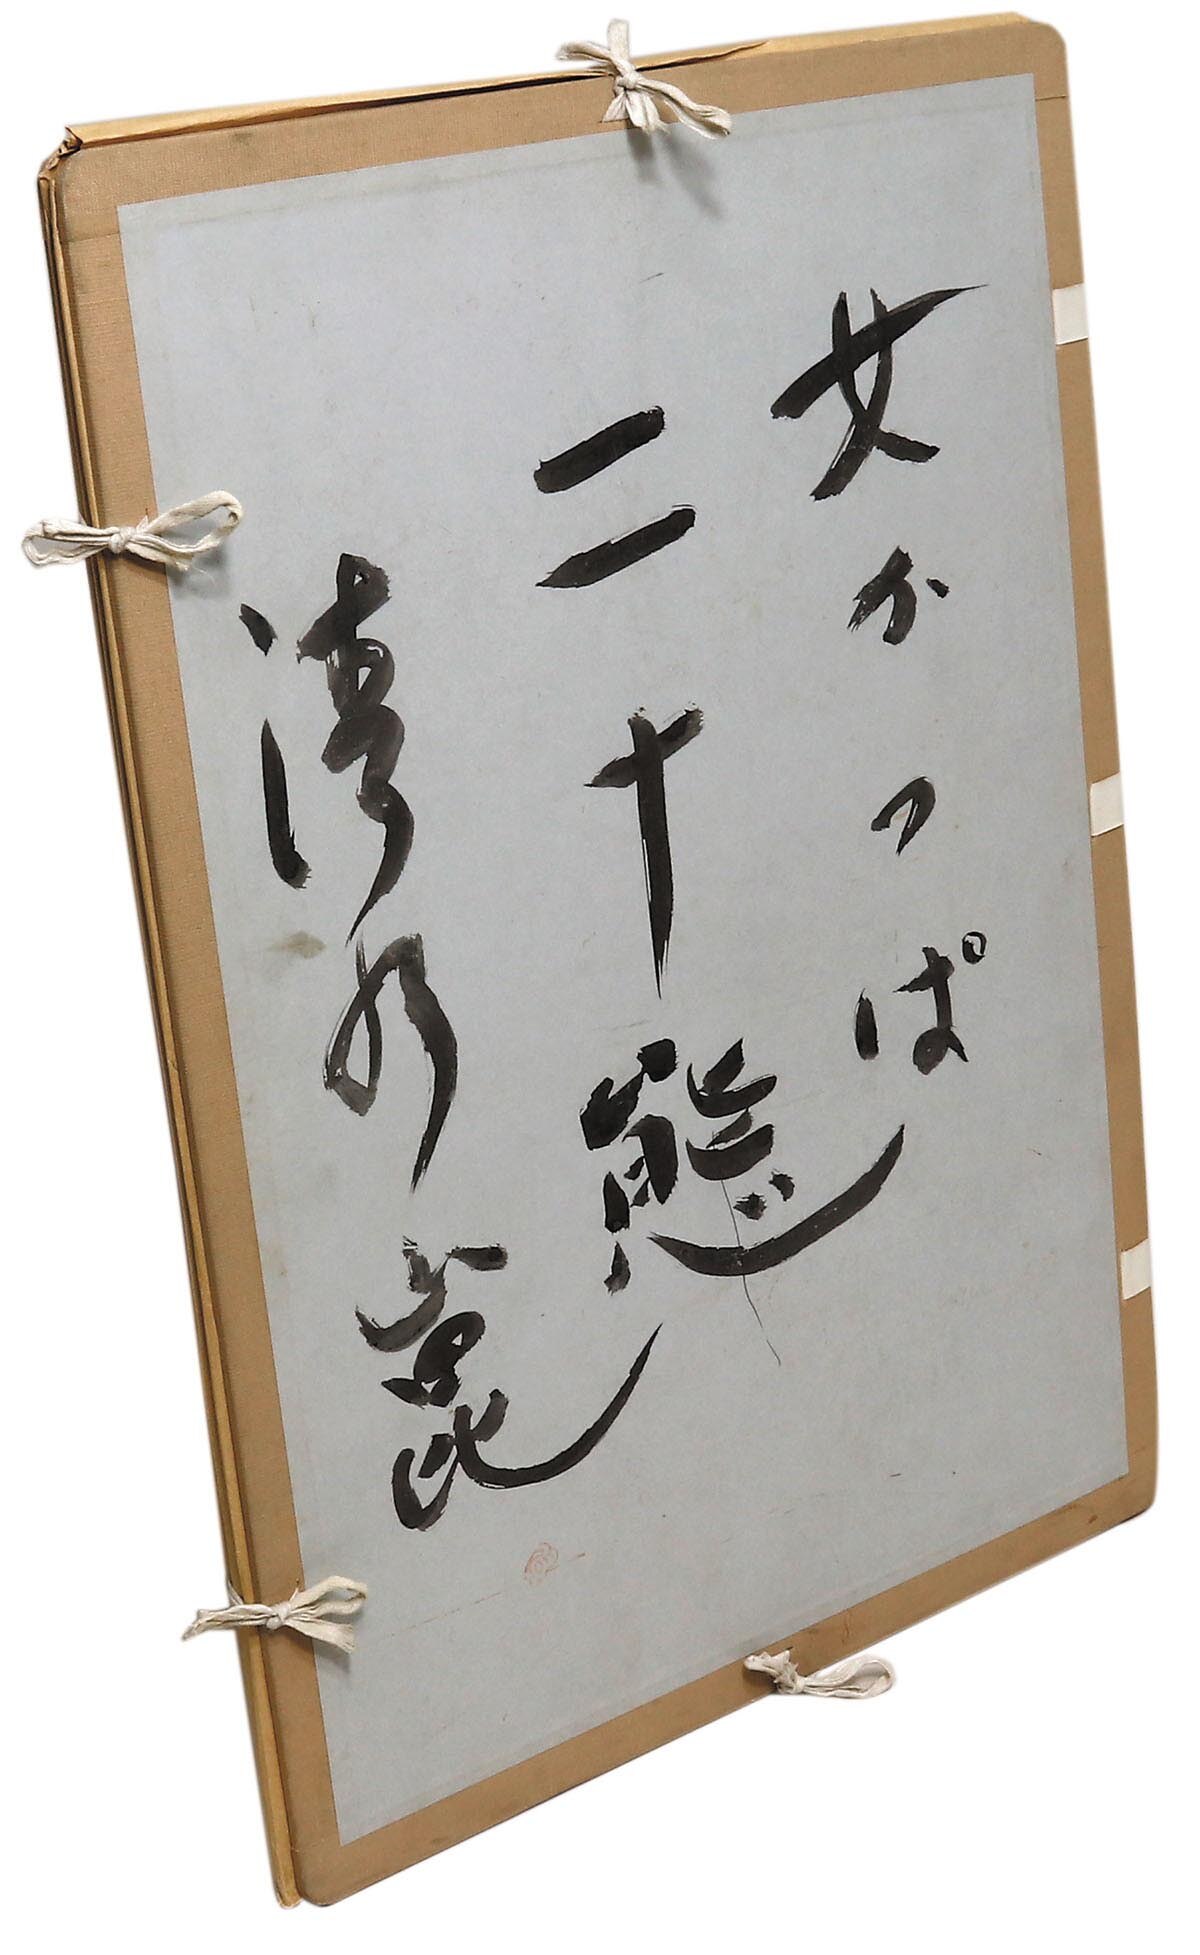 女かっぱ
二十態
清水崑